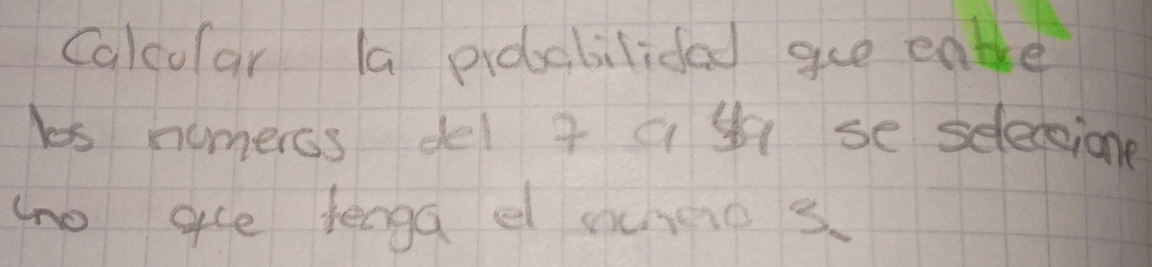 Calcular la probabilidad que entre
los numeros del 7 a se seleccione
uno que tenga el numero 3.